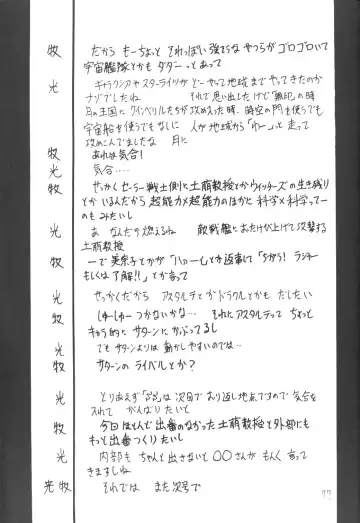 牧 だから もーちょっと それっぽい 強てきな やつらが ゴロゴロいて
宇宙艦隊とかも ダダーっとあって
光 ギャラクシアや スターライツが どーやって地球までやってきたのか
ナゾでしたね それで思い出したけど「無印」の時
月の王国に クインベリルたちが 攻め入った時、時空の門を使うでも
宇宙船を使うでもなしに 人が地球から「わーっ」と走って
攻めこんでましたな 月に
牧 あれは気合!
光 気合‥‥
牧 せっかくセーラー戦士側に土萠教授とかウィッチーズの生き残り
とかいるんだから 超能力×超能力のほかに 科学×科学ってー
のもみたいし
光 あ なんだか燃えるね 敵戦艦に おたけび上げて攻撃する
土萠教授
牧 ーで美奈子とかが「ハァーイ」とか返事して「ちがう! ラジャー
もしくは了解!!」とか言って
光 せっかくだから アスタルテとかドラクルとかも だしたい
牧 しゅーしゅー つかないかな‥‥ それに アスタルテって ちょっと
キャラ的に サターンに かぶってるし
光 でも サターンよりは 動かしやすいのでは‥‥
牧 サターンの ライバルとか?
光 とりあえず は次回で おり返し地点ですので 気合を
入れて がんばりたいと
牧 今回ほとんど出番のなかった 土萠教授と外部にも
もっと出番つくりたいし
光 内部も ちゃんと出さないと ○○さんが もんく言って
きますしね
光 牧 それでは また次号で
77